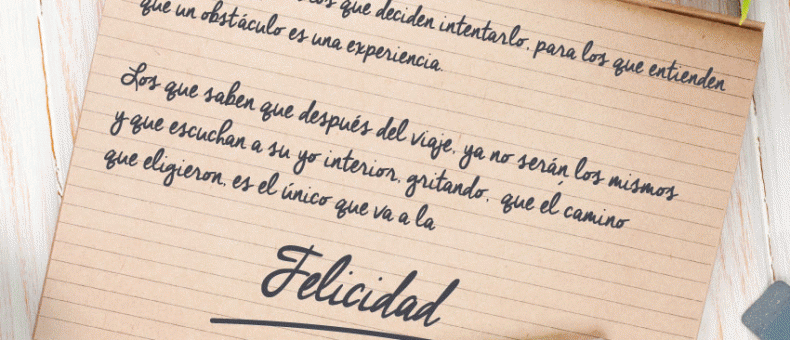 que deciden intentarlo, para los que entienden
que un obstáculo es una experiencia.
Los que saben que después del viaje, ya no serán los mismos
y que escuchan a su yo interior, gritando, que el camino
que eligieron, es el único que va a la
Felicidad